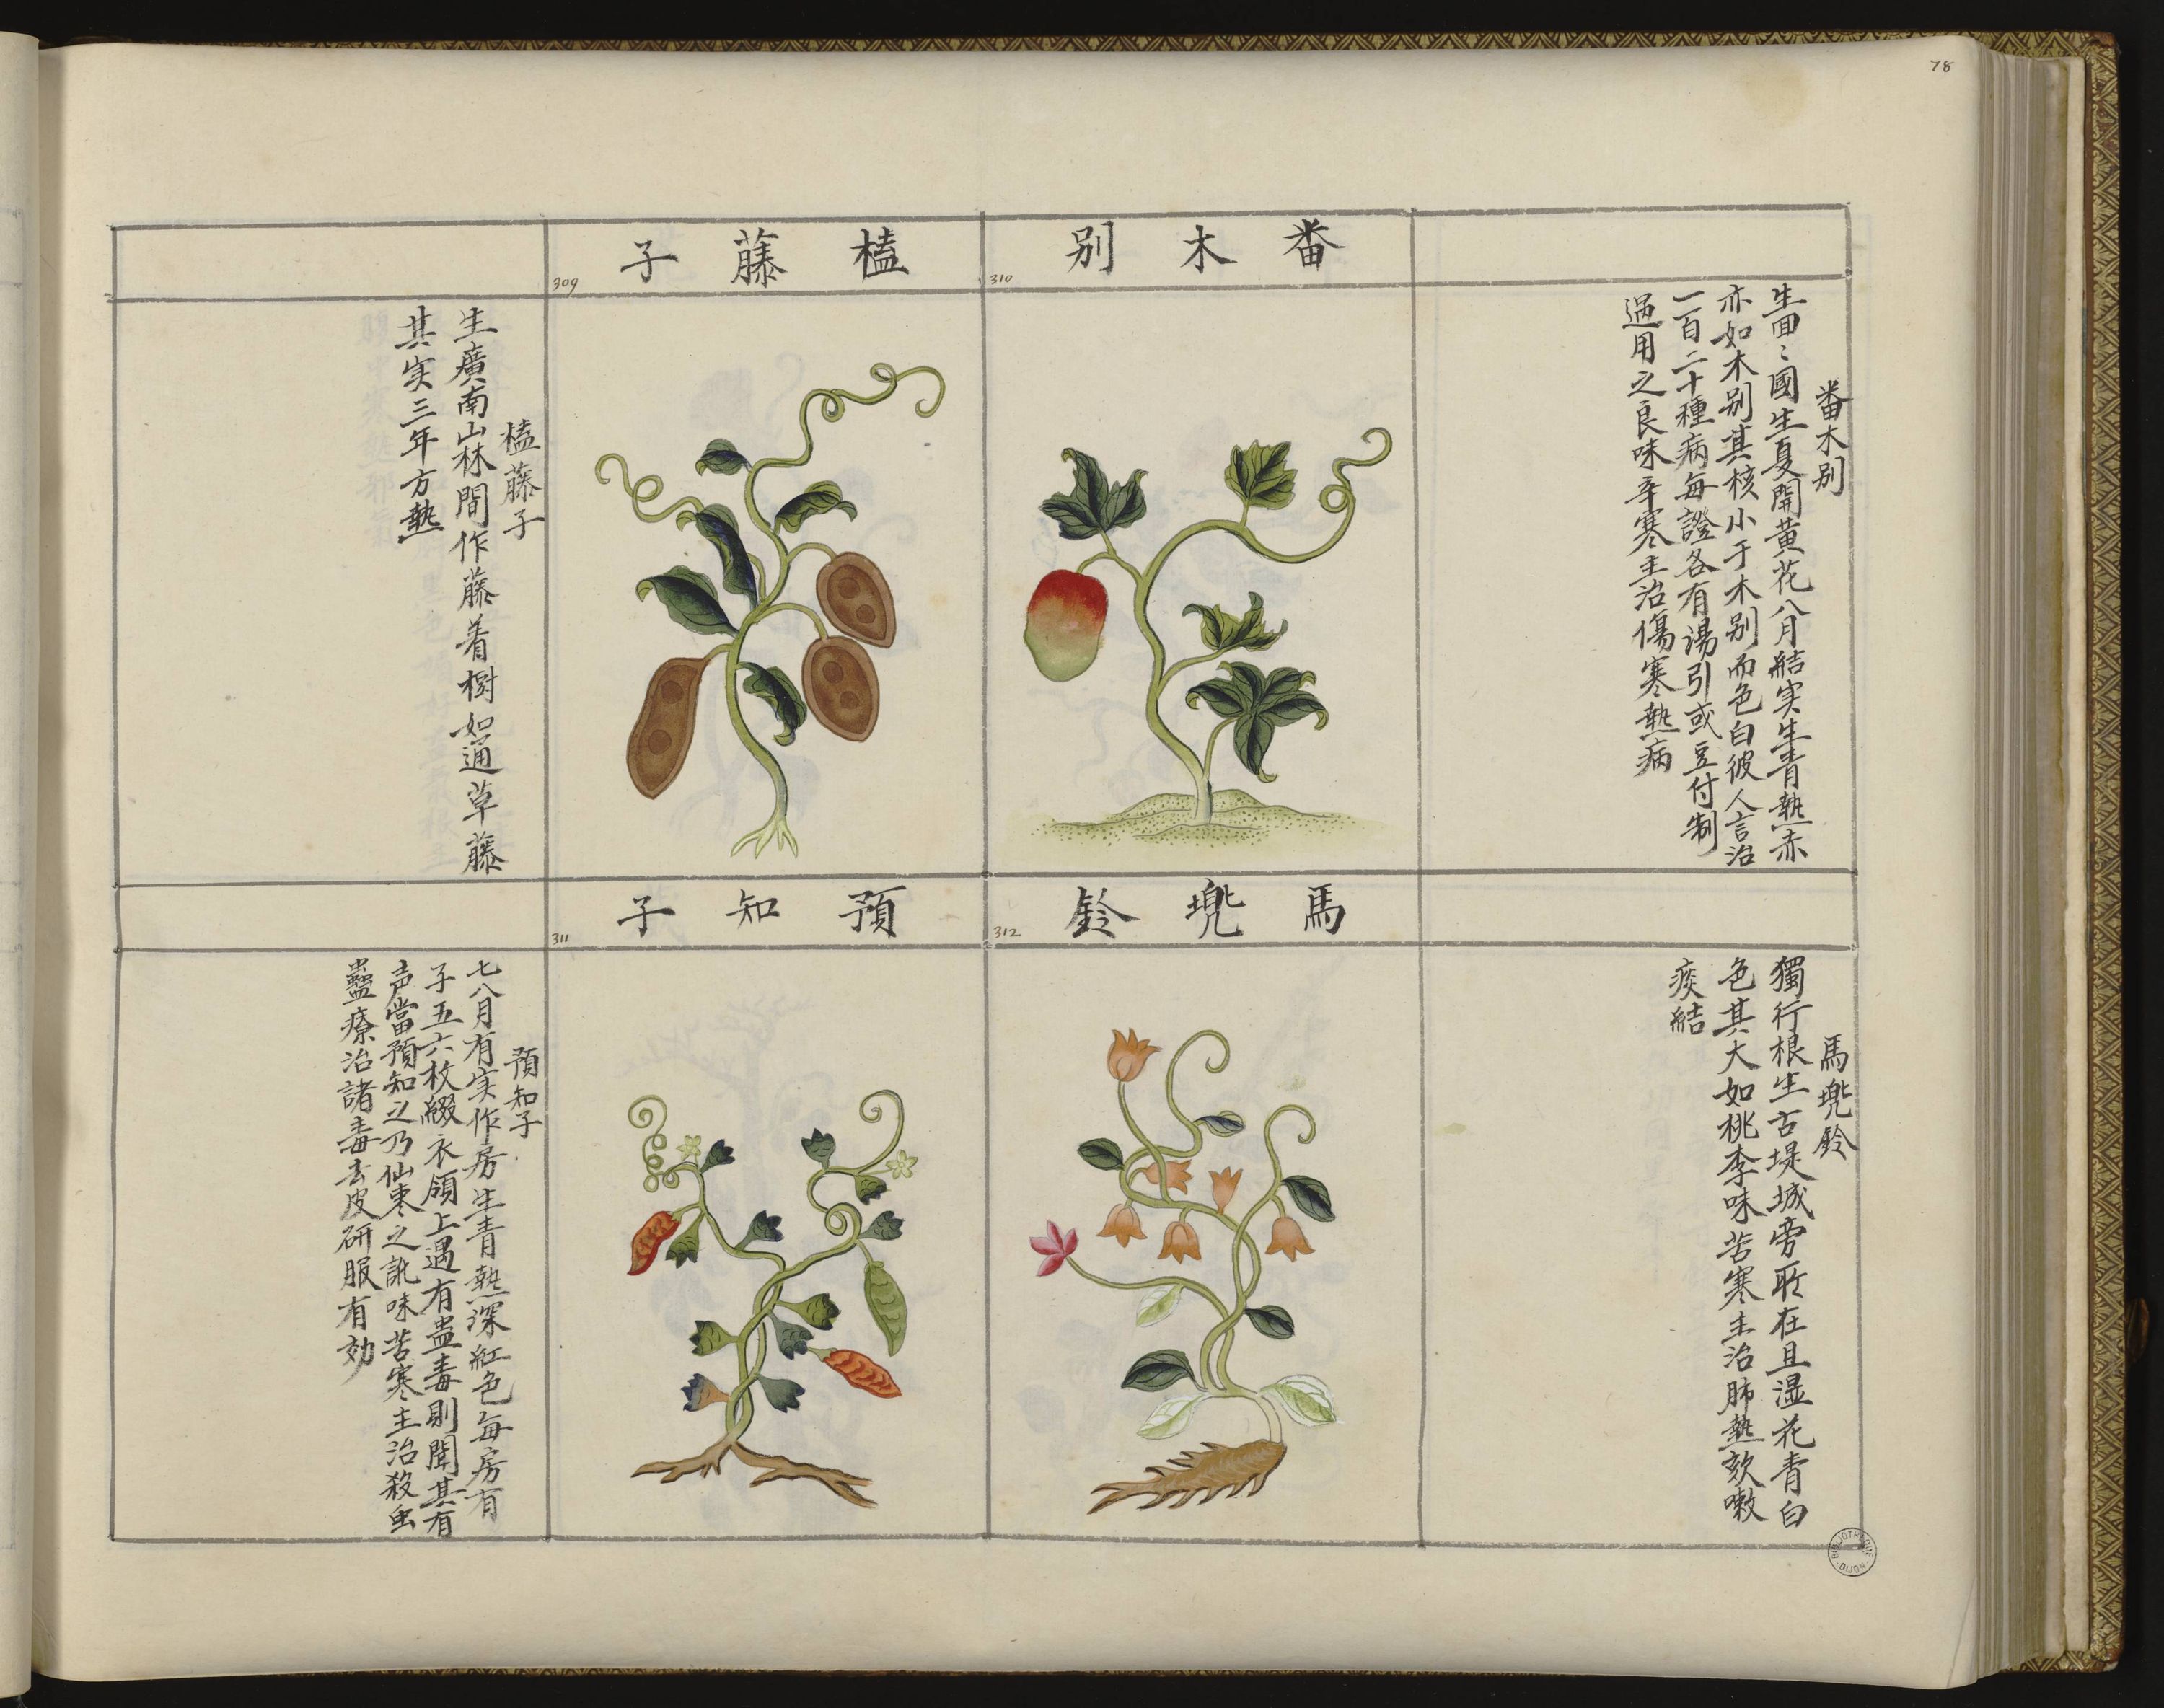 78
番木别
310
番木别
生回〻國生夏開黄花八月結实生青熟赤
亦如木别其核小于木别而色白彼人言治
一百二十種病每證各有湯引或豆付制
過用之良味辛寒主治傷寒熱病
榼藤子
309
榼藤子
生廣南山林間作藤着樹如通草藤
其实三年方熟
馬兠鈴
312
馬兠鈴
獨行根生古堤城旁㪽在且湿花青白
色其大如桃李味苦寒主治肺熱欬嗽
痰結
預知子
311
預知子
七八月有实作房生青熟深紅色每房有
子五六枚綴衣領上遇有蛊毒則聞其有
声當預知之乃仙枣之訛味苦寒主治殺虫
蠱療治諸毒去皮研服有効
BIBLIOTHEQUE DIJON